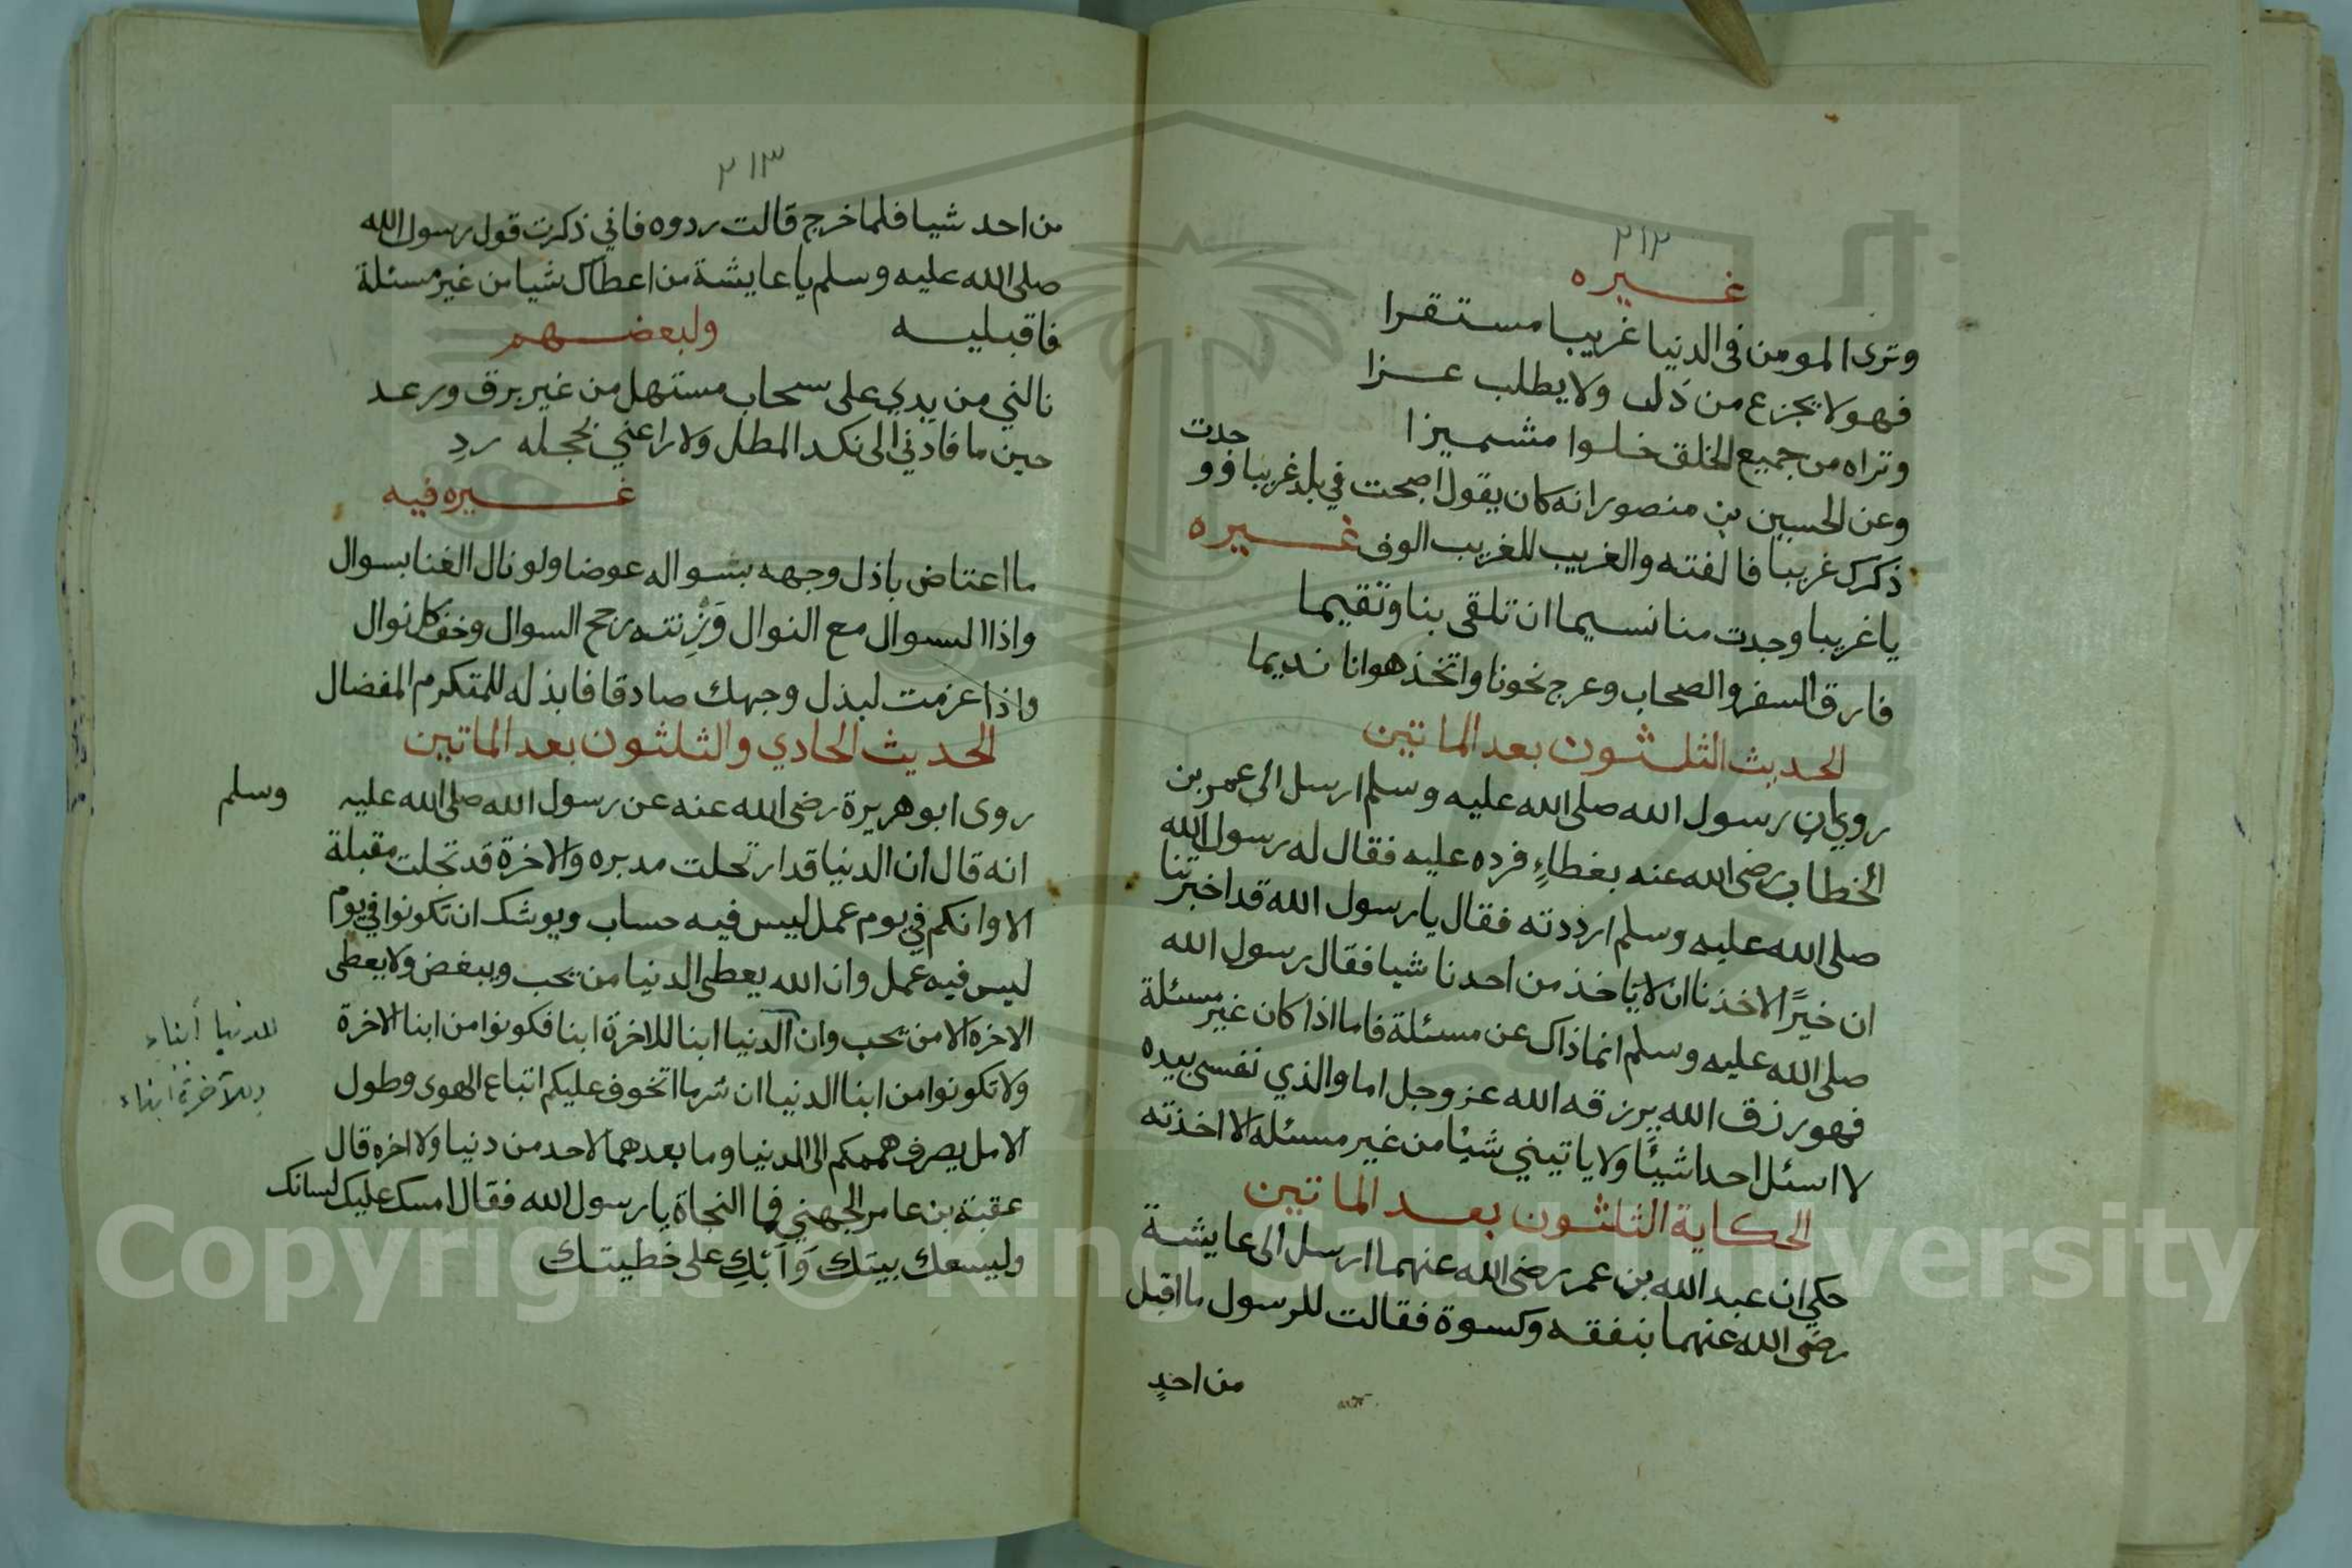 ٢١٢
غيره
وترى المومن في الدنيا غريبا مستقرا
فهو لا يجزع من ذل ولا يطلب عزا
وتراه من جميع الخلق خلوا مشميزا
وعن الحسين بن منصور انه كان يقول اصبحت في بلد غريبا فوو
حدت
ذكرك غريبا فالفته والغريب للغريب الوف غيره
يا غريبا وجدت منا نسيما ان تلقى بنا وتقيما
فارق السفر والصحاب وعرج نحونا واتخذ هوانا نديما
الحديث الثلثون بعد الماتين
روي ان رسول الله صلى الله عليه وسلم ارسل الى عمر بن
الخطاب رضى الله عنه بغطاءٍ فرده عليه فقال له رسول الله
صلى الله عليه وسلم ارددته فقال يا رسول الله قد اخبرتنا
ان خيرًا لاخذنا ان لا ياخذ من احدنا شيا فقال رسول الله
صلى الله عليه وسلم انما ذاك عن مسئلة فاما اذا كان غير مسئلة
فهو رزق الله يرزقه الله عز وجل اما والذي نفسى بيده
لا اسئل احدا شيئًا ولا ياتيني شيئا من غير مسئلة الا اخذته
الحكاية الثلثون بعد الماتين
حكي ان عبد الله بن عمر رضى الله عنهما ارسل الى عايشة
رضى الله عنهما بنفقه وكسوة فقالت للرسول ما اقبل
من احدٍ
٢١٣
من احد شيا فلما خرج قالت ردوه فاني ذكرت قول رسول الله
صلى الله عليه وسلم يا عايشة من اعطاك شيا من غير مسئلة
فاقبليه ولبعضهم
نالني من يدي على سحاب مستهل من غير برق ورعد
حين ما قادني الى نكد المطل ولا راعني بخجله ردِ
غيره فيه
ما اعتاض باذل وجهه بسواله عوضا ولو نال الغنا بسوال
واذا السوال مع النوال وَزِنته رجح السوال وخف كل نوال
واذا عزمت لبذل وجهك صادقا فابذله للمتكرم المفضال
الحديث الحادي والثلثون بعد الماتين
روى ابو هريرة رضى الله عنه عن رسول الله صلى الله عليه وسلم
انه قال ان الدنيا قد ارتحلت مدبره والاخرة قد تجلت مقبلة
الا وانكم في يوم عمل ليس فيه حساب ويوشك ان تكونوا في يوم
ليس فيه عمل وان الله يعطى الدنيا من يحب ويبغض ولا يعطى
الاخرة الا من يحب وان الدنيا ابنا للاخرة ابنا فكونوا من ابنا الاخرة
للدنيا أبناء
وللآخرة ابناء
ولا تكونوا من ابنا الدنيا ان شر ما اتخوف عليكم اتباع الهوى وطول
الامل يصرف هممكم الى الدنيا وما بعدهما لاحد من دنيا ولا اخره قال
عقبة بن عامر الجهني فما النجاة يا رسول الله فقال امسك عليك لسانك
وليسعك بيتك وَابْكِ على خطيتك
Copyright © King Saud University